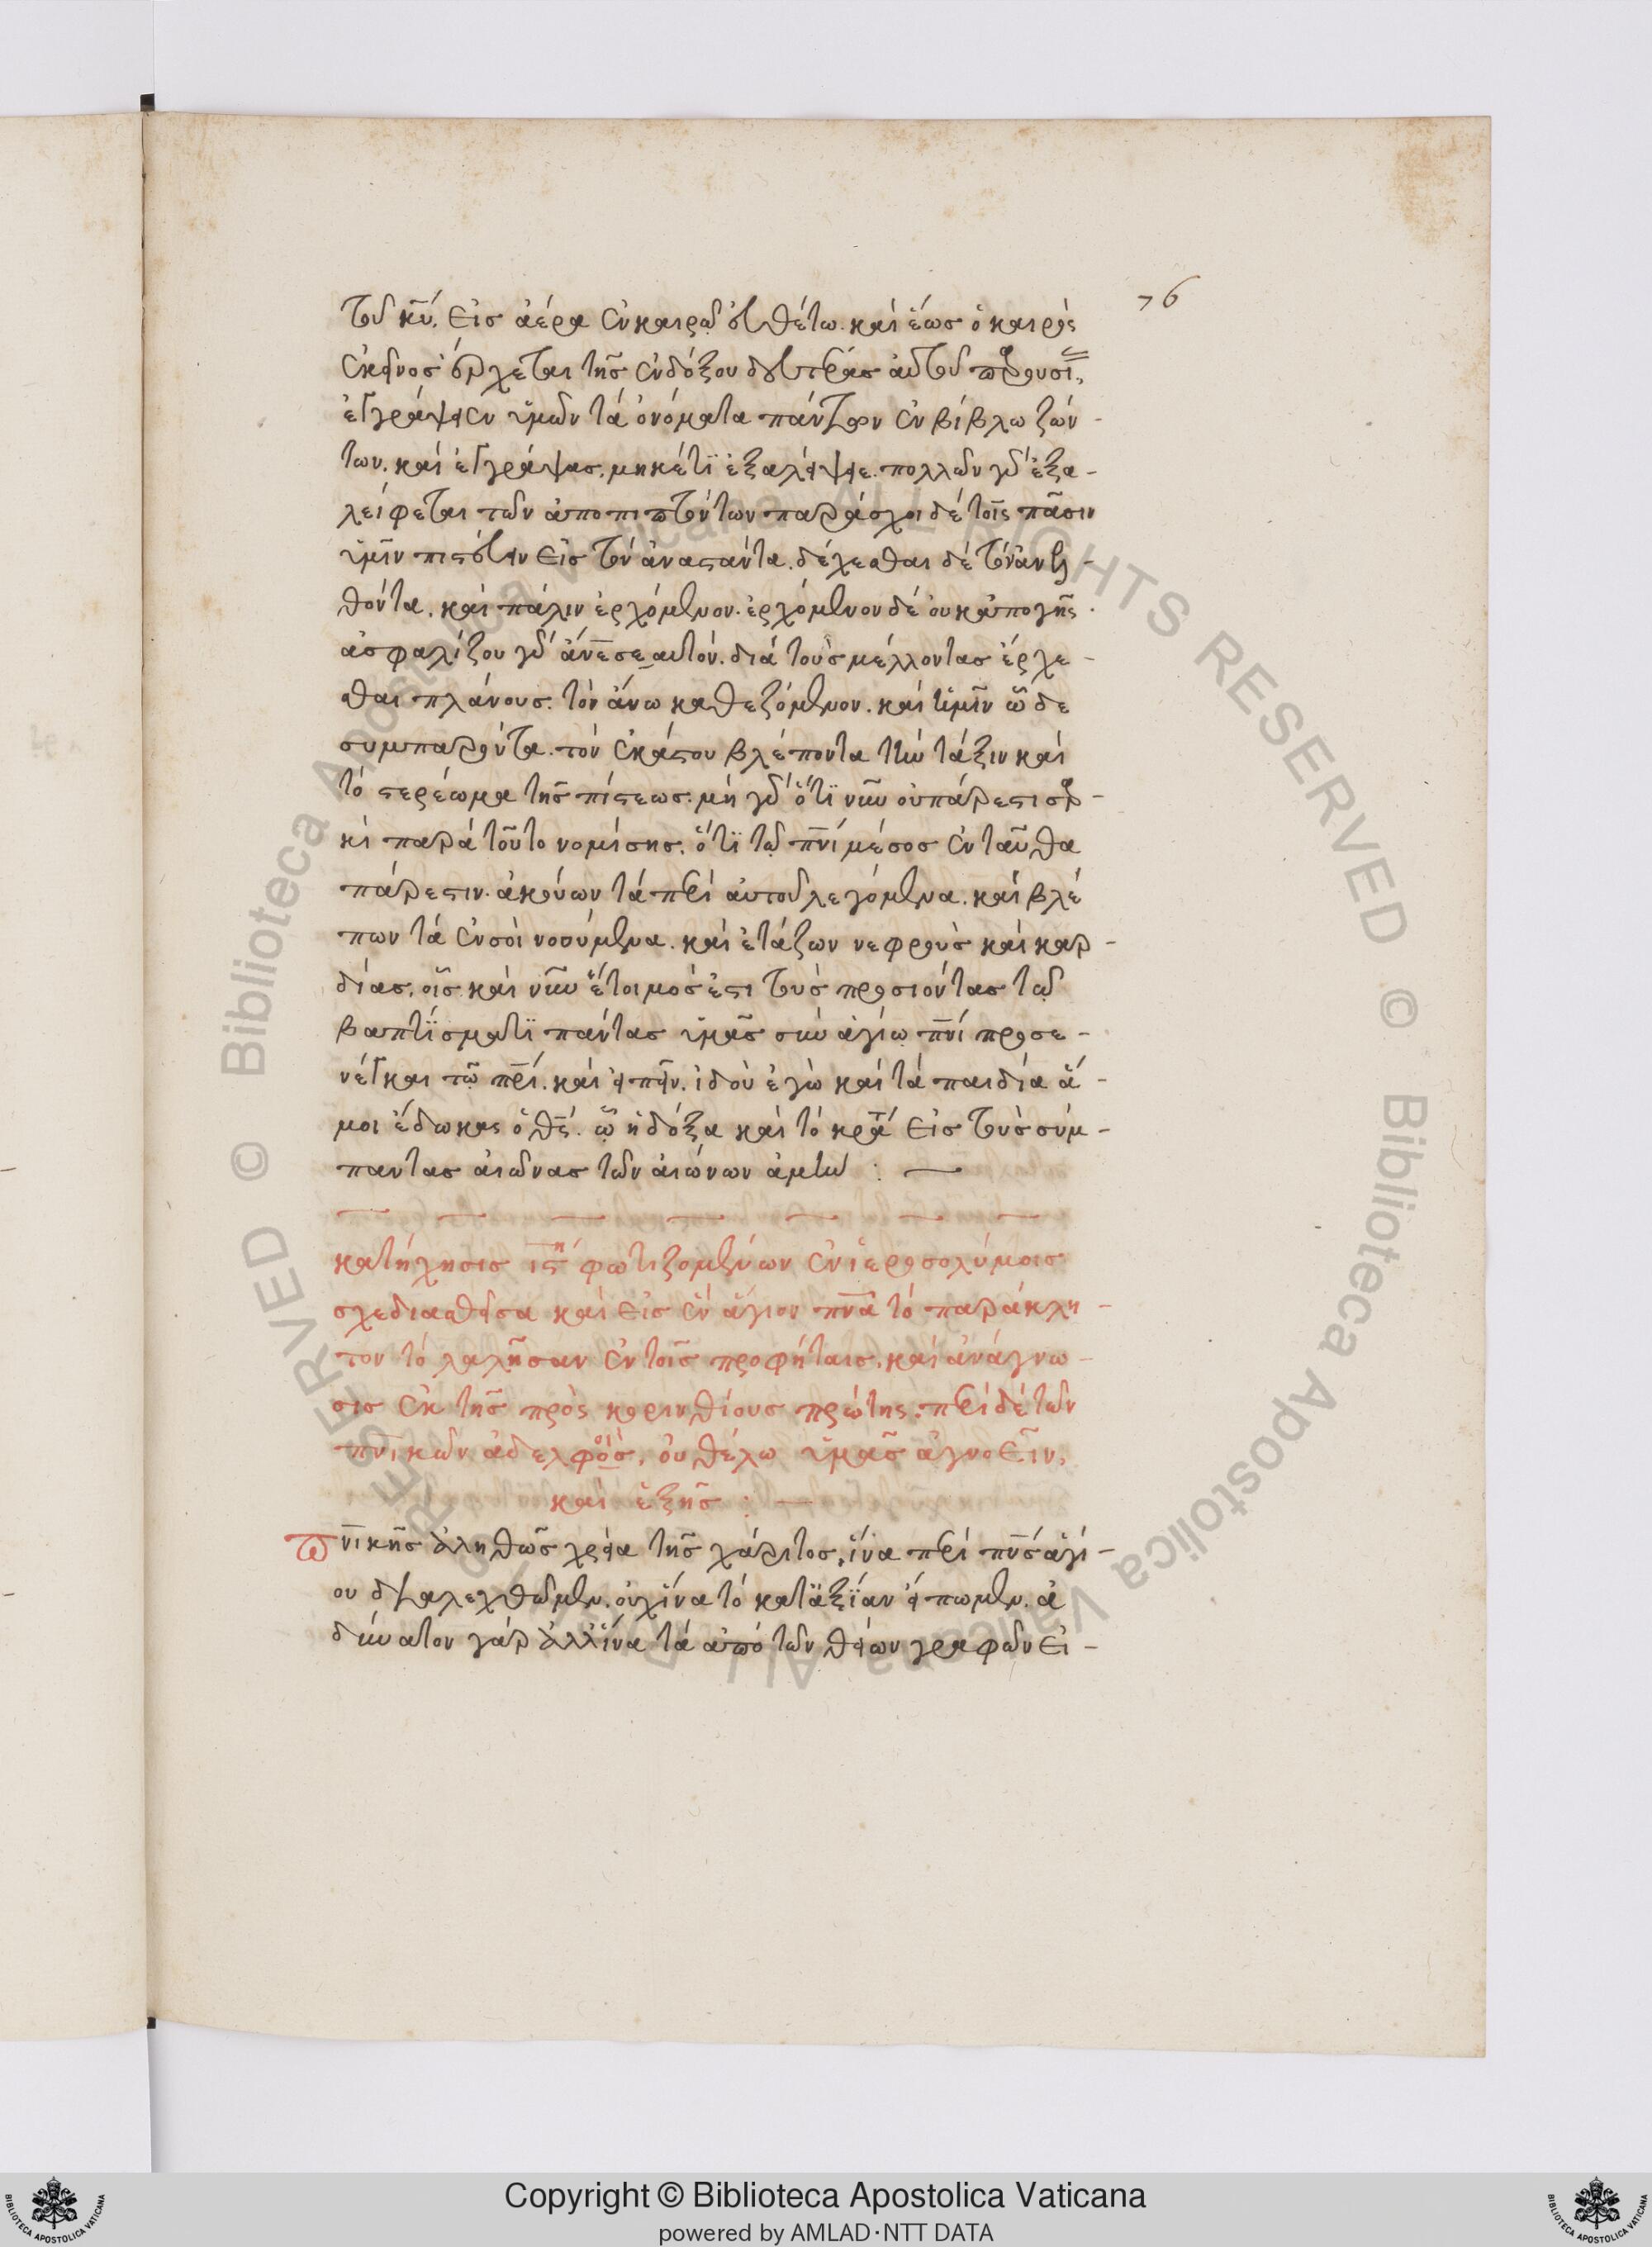 76
τοῦ κ̅υ̅. εἰς ἀέρα ἐν καιρῷ εὐθέτω. καὶ ἕως ὁ καιρὸς
ἐκεῖνος ἔρχεται τῆς ἐνδόξου δευτέρας αὐτοῦ παρουσί,
ἐγγράψειεν ὑμῶν τὰ ὀνόματα πάντων ἐν βίβλω ζών-
των. καὶ ἐγγράψας, μηκέτι ἐξαλείψειε. πολλῶν γὰρ ἐξα-
λείφεται τῶν ἀποπιπτόντων παράσχοι δὲ τοῖς πᾶσιν
ὑμῖν πιστεύειν εἰς τὸν ἀναστάντα. δέχεσθαι δὲ τὸν ἀνελ-
θόντα. καὶ πάλιν ἐρχόμενον. ἐρχόμενον δὲ οὐκ ἀπὸ γῆς.
ἀσφαλίζου γὰρ ἄν̅ε̅ σεαυτόν. διὰ τοὺς μέλλοντας ἔρχε-
σθαι πλάνους. τὸν ἄνω καθεζόμενον. καὶ ὑμῖν ὧδε
συμπαρόντα. τὸν ἑκάστου βλέποντα τὴν τάξιν καὶ
τὸ στερέωμα τῆς πίστεως. μὴ γὰρ ὅτι νῦν οὐ πάρεστι σαρ-
κὶ παρὰ τοῦτο νομίσης. ὅτι τῷ π̅ν̅ι̅ μέσος ἐνταῦθα
πάρεστιν. ἀκούων τὰ περὶ αὐτοῦ λεγόμενα. καὶ βλέ
πων τὰ ἐν σοὶ νοούμενα. καὶ ἐτάζων νεφροὺς καὶ καρ-
δίας. οἷς καὶ νῦν ἕτοιμός ἐστι τοὺς προσιόντας τῷ
βαπτίσματι πάντας ὑμᾶς σὺν ἁγίω π̅ν̅ι̅ προσε-
νέγκαι τῷ π̅ρ̅ι̅. καὶ εἰπεῖν. ἰδοὺ ἐγὼ καὶ τὰ παιδία ἅ-
μοι ἔδωκας ὁ θ̅ς̅. ὧ ἡ δόξα καὶ τὸ κρά εἰς τοὺς σύμ-
παντας αἰῶνας τῶν αἰώνων ἀμήν : —
κατήχησις ι̅ς̅ η φωτιζομένων ἐν ἱεροσολύμοις
σχεδιασθεῖσα καὶ εἰς ἓν ἅγιον π̅ν̅α̅ τὸ παράκλη-
τον τὸ λαλῆσαν ἐν τοῖς προφήταις. καὶ ἀνάγνω-
σις ἐκ τῆς πρὸς κορινθίους πρώτης. περὶ δὲ τῶν
π̅ν̅ικῶν ἀδελφοὶς, οὐ θέλω ὑμᾶς ἀγνοεῖν,
καὶ ἑξῆς : —
π̅ν̅ικῆς ἀληθῶς χρεία τῆς χάριτος, ἵνα περὶ π̅ν̅ς̅ ἁγί-
ου διαλεχθῶμεν. οὐχ ἵνα τὸ κατ ἀξίαν εἴπωμεν. ἀ
δύνατον γάρ ἀλλ ἵνα τὰ ἀπὸ τῶν θείων γραφῶν εἰ-
Copyright © Biblioteca Apostolica Vaticana
powered by AMLAD·NTT DATA